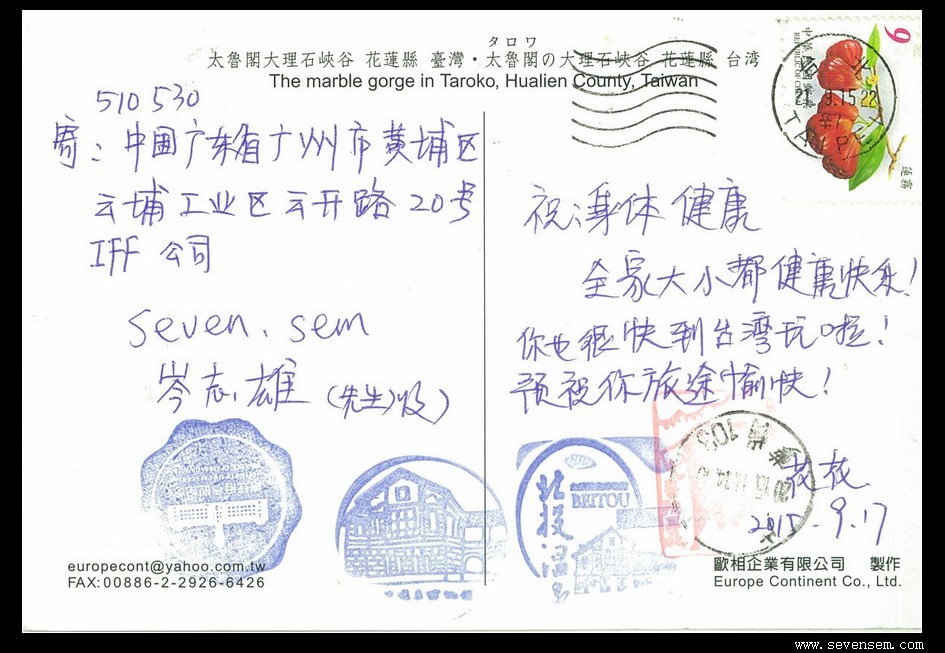 タロワ
太魯閣大理石峽谷 花蓮縣 臺灣・太魯閣の大理石峽谷 花蓮縣 台湾
The marble gorge in Taroko, Hualien County, Taiwan
9
中華民國郵票
REPUBLIC OF CHINA
蓮霧
TAIPEI
510530
寄：中国广东省广州市黄埔区
云埔工业区云开路20号
IFF 公司
seven.sem
岑志雄 (先生)收)
祝:身体健康
全家大小都健康快乐!
你也很快到台湾玩啦!
预祝你旅途愉快!
花花
2015-9.17
北投温泉
BEITOU
europecont@yahoo.com.tw
FAX:00886-2-2926-6426
歐相企業有限公司 製作
Europe Continent Co., Ltd.
www.sevensem.com